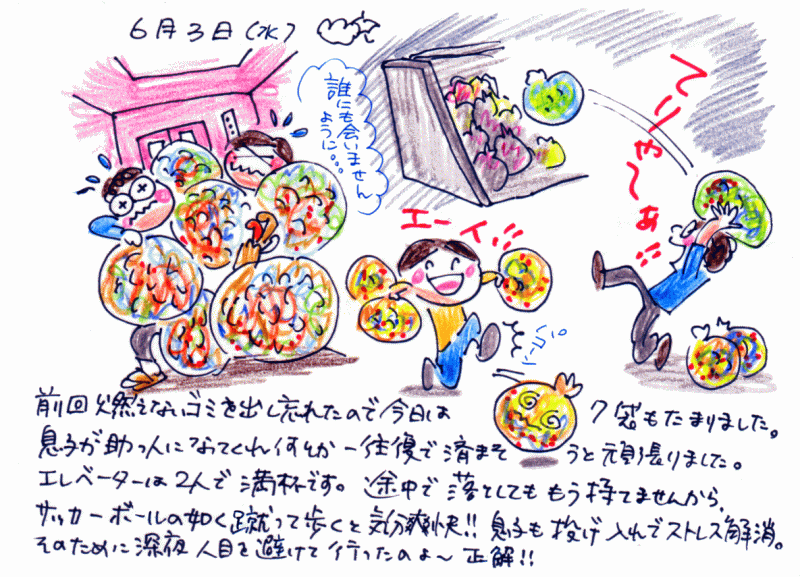 6月3日(水)
誰にも会いません
ように。。。
てりゃ〜ぁ!!
エーイ!!
パコーン
前回燃えないゴミを出し忘れたので今日は7袋もたまりました。
息子が助っ人になってくれ何とか一往復で済まそうと頑張りました。
エレベーターは2人で満杯です。途中で落としてももう持てませんから、
サッカーボールの如く蹴って歩くと気分爽快!!息子も投げ入れてストレス解消。
そのために深夜人目を避けて行ったのよ〜正解!!